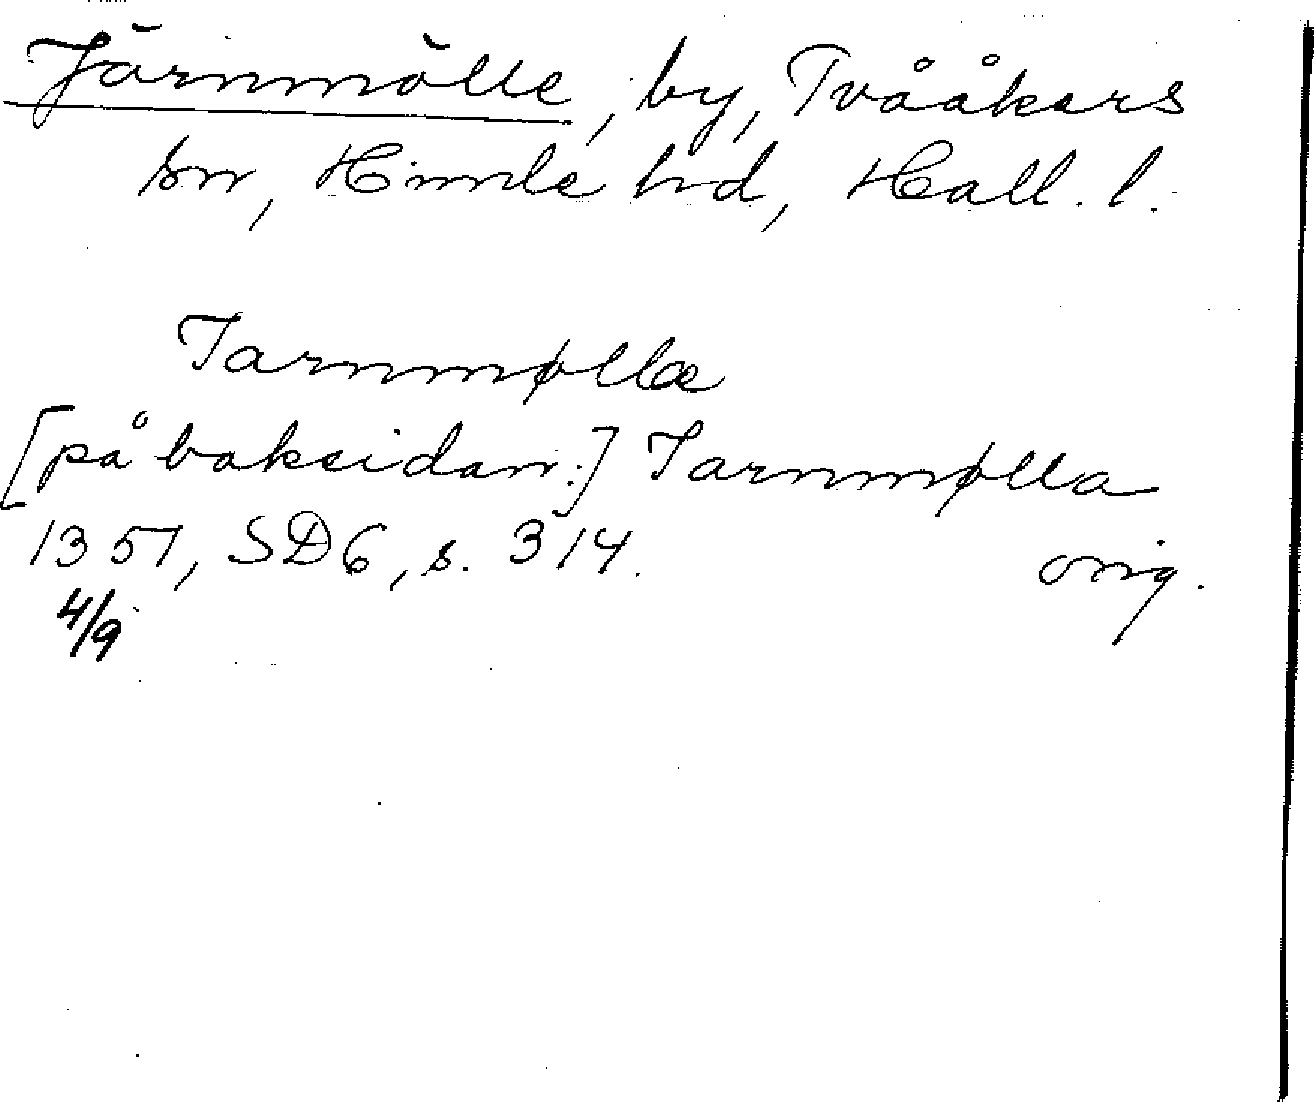 Järnmölle, by, Tvååkers
sn, Himle hd, Hall. l.
Iarnmøllæ
[på baksidan:] Iarnmølla
1357, SD6, s. 314.
orig.
4/9